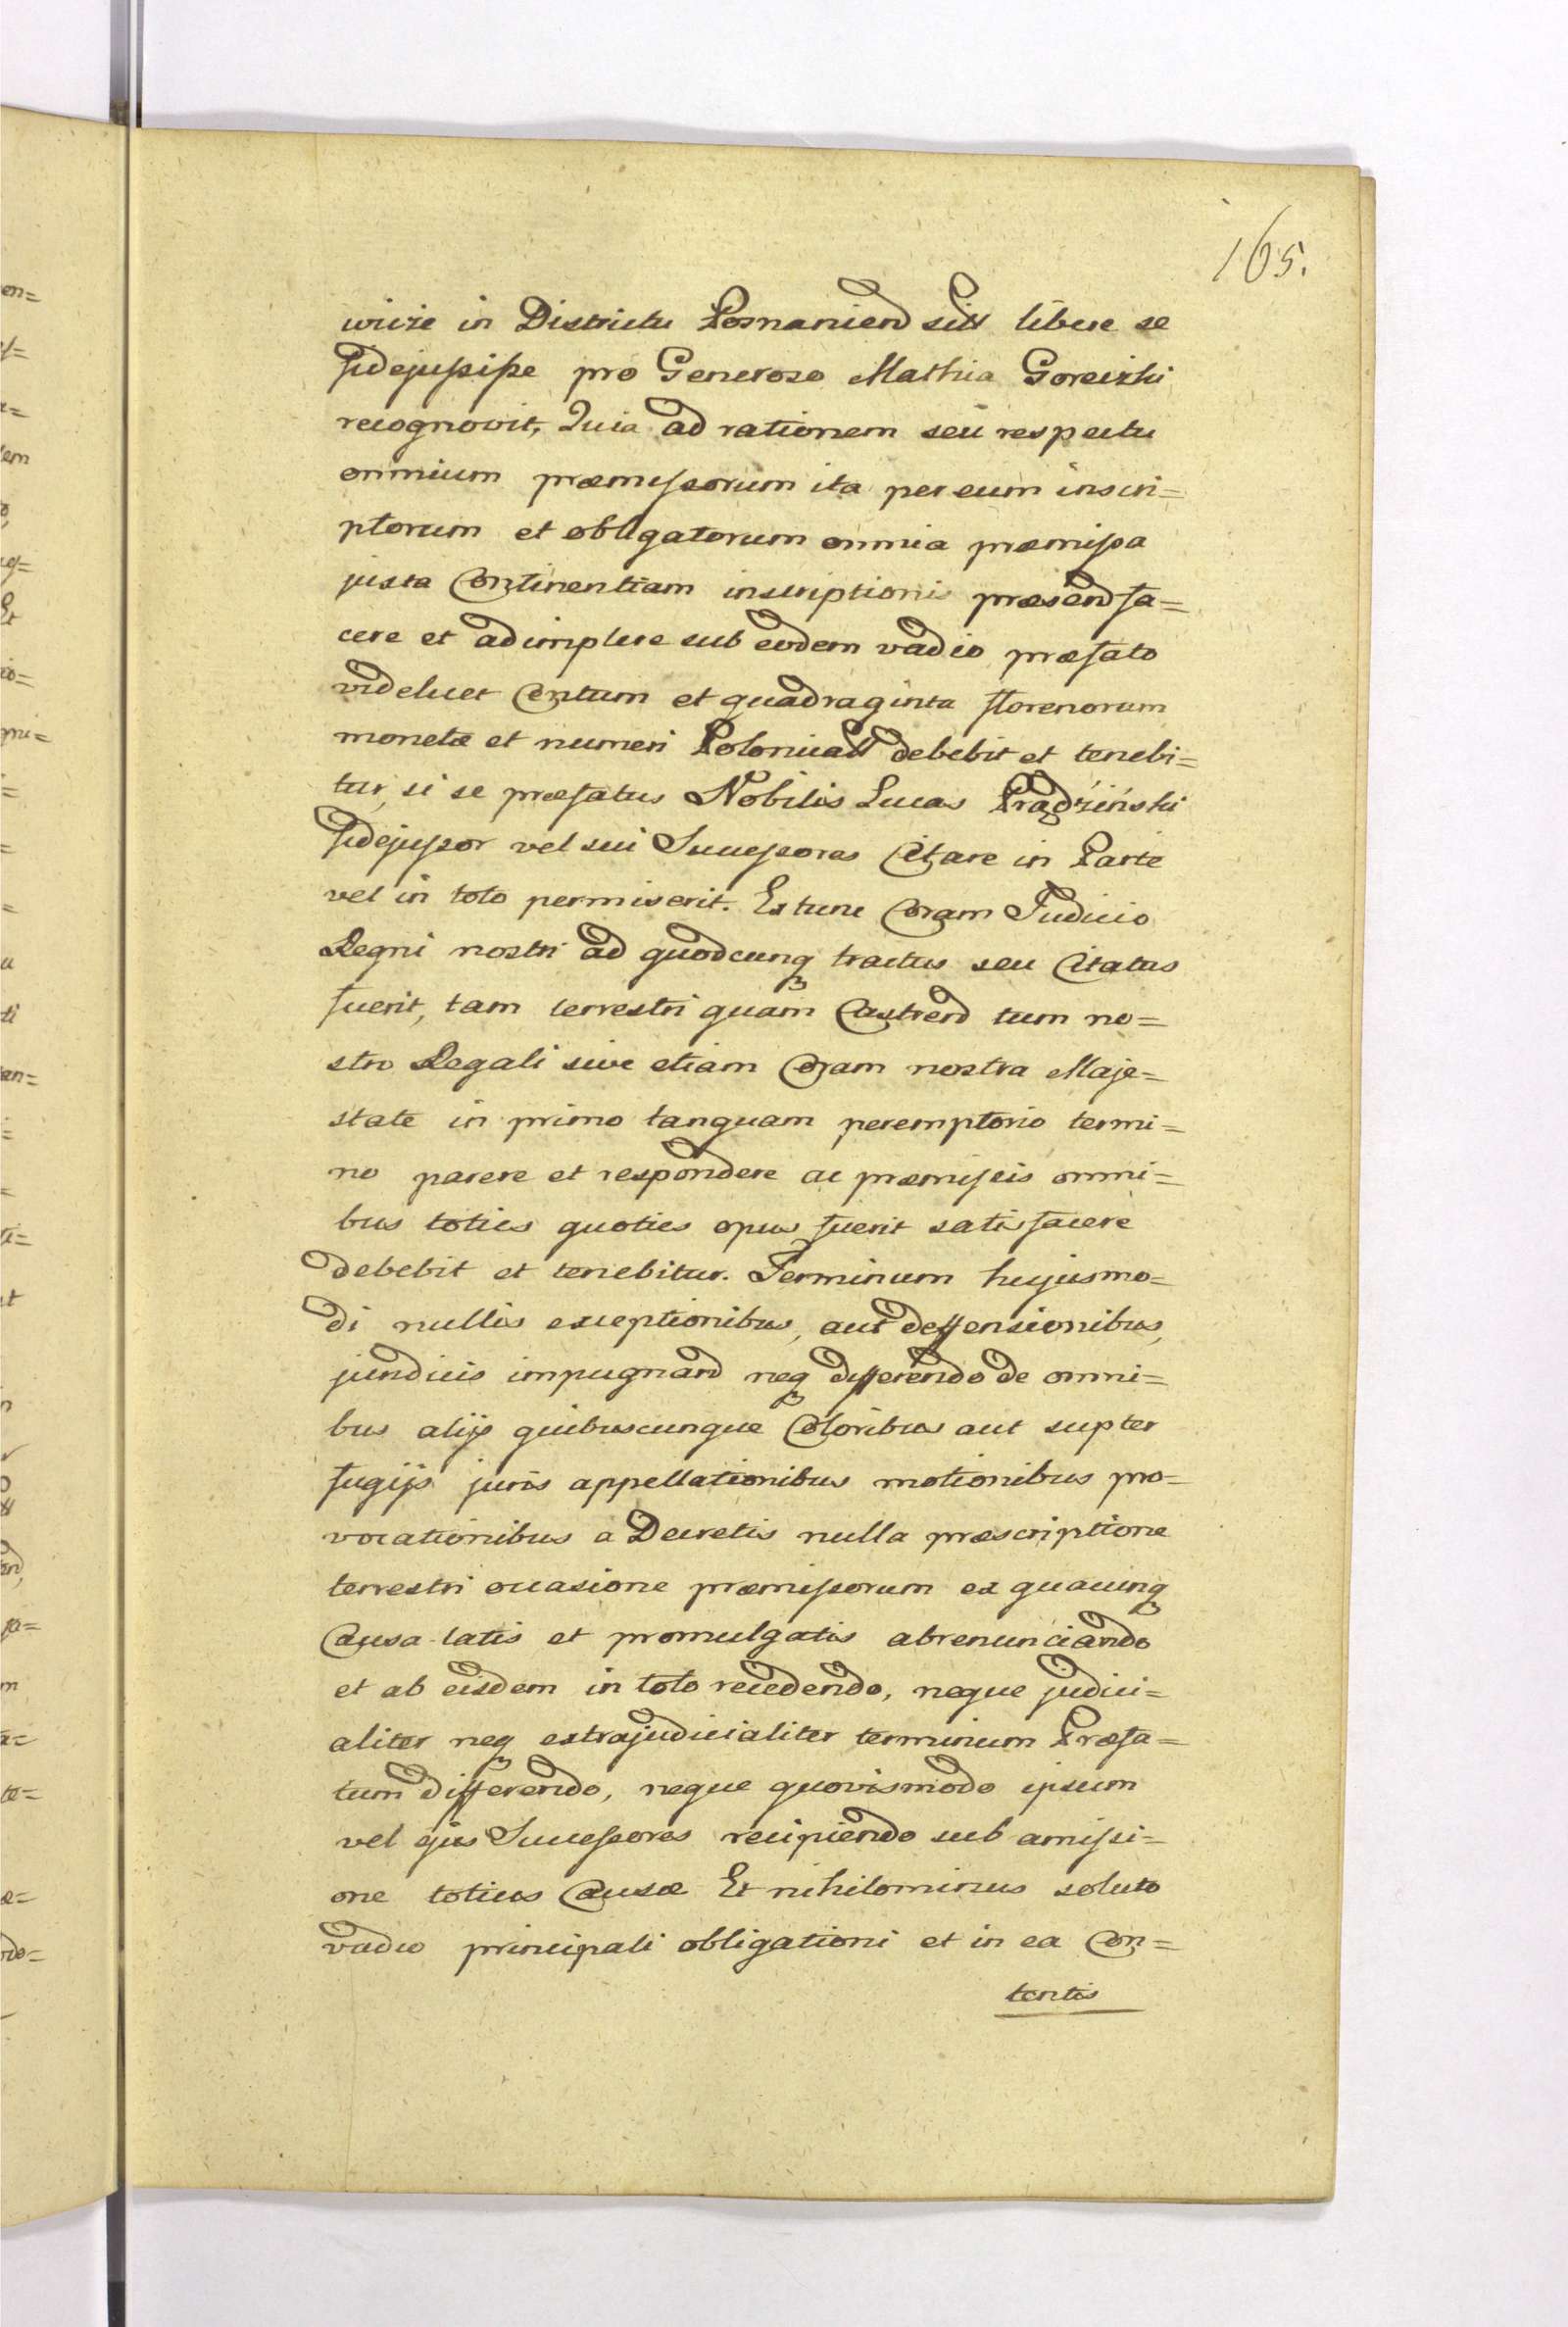 165.
wicze in Districtu Posnaniend sitt libere se
fidejussisse pro Generoso Mathia Goreczki
recognovit, Quia ad rationem seu respectu
omnium præmissorum ita per eum inscri=
ptorum et obligatorum omnia præmissa
juxta Continentiam inscriptionis præsend fa=
cere et adimplere sub eodem vadio præfato
videlicet Centum et quadraginta florenorum
monetæ et numeri Polonicall debebit et tenebi=
tur, si se præfatus Nobilis Lucas Prądziński
fidejussor vel sui Successores Citare in Parte
vel in toto permiserit. Ex tunc Coram Judicio
Regni nostri ad quodcunq tractus seu Citatus
fuerit, tam terrestri quam Castrend tum no=
stro Regali sive etiam Coram nostra Maje=
state in primo tanquam peremptorio termi=
no parere et respondere ac præmissis omni=
bus toties quoties opus fuerit satisfacere
debebit et tenebitur. Terminum hujusmo=
di nullis exceptionibus, aut deffensionibus,
juridicis impugnand neq differendo de omni=
bus alijs quibuscunque Coloribus aut supter
fugijs juris appellationibus motionibus pro=
vocationibus a Decretis nulla præscriptione
terrestri occasione præmissorum ex quacunq
Causa latis et promulgatis abrenunciando
et ab eisdem in toto recedendo, neque judici=
aliter neq extrajudicialiter terminum Præfa=
tum differendo, neque quovismodo ipsum
vel ejus Successores recipiendo sub amissi=
one totius Causæ Et nihilominus soluto
vadio principali obligationi et in ea Con=
tentis